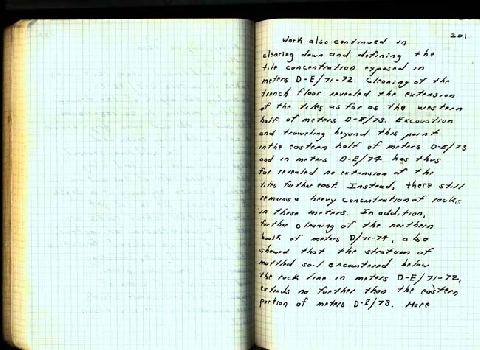 201
Work also continued in
clearing down and defining the
tile concentration exposed in
meters D-E/71-72. Cleaning of the
trench floor revealed the extension
of the tiles as far as the western
half of meters D-E/73. Excavation
and troweling beyond this point
in the eastern half of meters D-E/73
and in meters D-E/74 has thus
far revealed no extension of the
tiles further east. Instead, there still
remains a heavy concentration of rocks
in these meters. In addition,
further cleaning of the northern
baulk of meters D/71-74, also
showed that the stratum of
mottled soil encountered below
the rock line in meters D-E/71-72,
extends no further than the eastern
portion of meters D-E/73. More